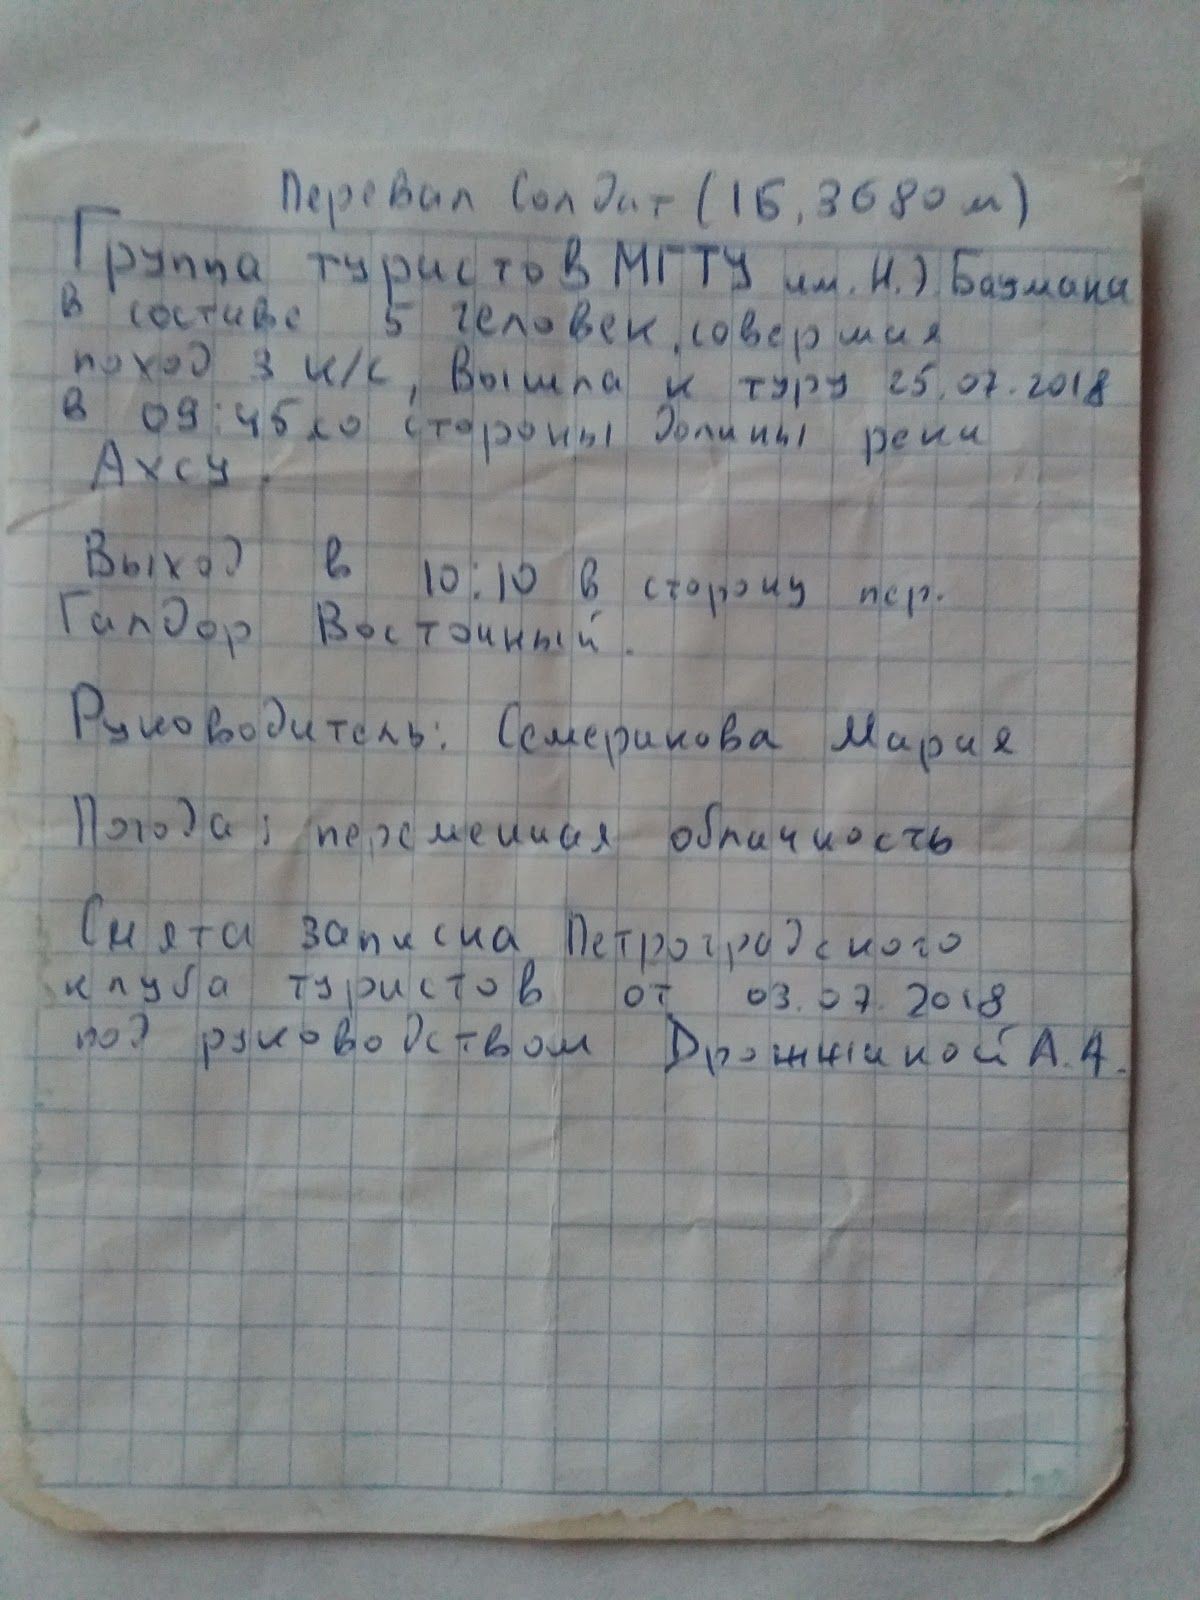 Перевал Солдат (1Б, 3680 м)
Группа туристов МГТУ им. Н.Э Баумана
в составе 5 человек, совершая
поход 3 к/с, вышла к туру 25.07.2018
в 09:45 со стороны долины реки
Ахсу.
Выход в 10:10 в сторону пер.
Галдор Восточный.
Руководитель: Семерикова Мария
Погода: переменная облачность
Снята записка Петроградского
клуба туристов от 03.07.2018
под руководством Дрожжиной А.А.